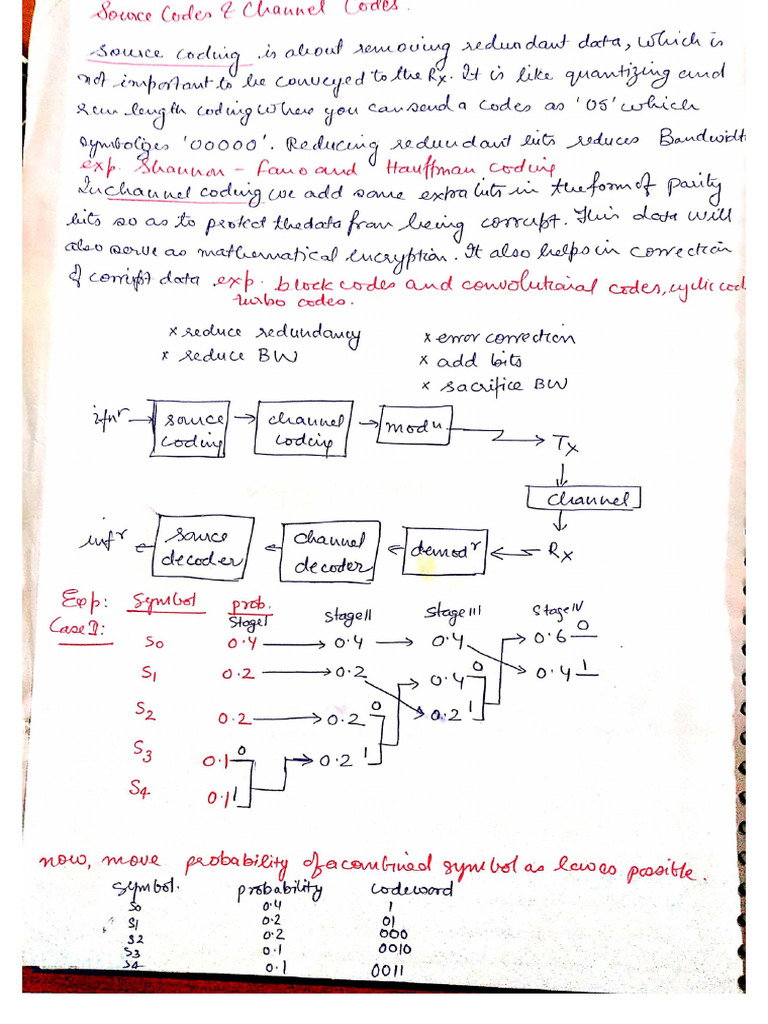 Source Codes & Channel Codes.
Source coding is about removing redundant data, which is
not important to be conveyed to the Rx. It is like quantizing and
run length coding where you can send a codes as '05' which
symbolizes '00000'. Reducing redundant bits reduces Bandwidth
exp. Shannon - Fano and Hauffman coding
In channel coding we add some extra bits in the form of parity
bits so as to protect the data from being corrupt. This data will
also serve as mathematical encryption. It also helps in correction
of corript data. exp. block codes and convolutional codes, cyclic cod
turbo codes.
x reduce redundancy x error correction
x reduce BW x add bits
x sacrifice BW
infr source coding channel coding modu. Tx
channel
infr source decoder channel decoder demodr Rx
Exp: Symbol prob.
Case I: Stage I Stage II Stage III Stage IV
S0 0.4 0.4 0.4 0.6 0
S1 0.2 0.2 0.4 0 0.4 1
S2 0.2 0.2 0 0.2 1
S3 0.1 0 0.2 1
S4 0.1 1
now, move probability of a combined symbol as low as possible.
Symbol. probability codeword
S0 0.4 1
S1 0.2 01
S2 0.2 000
S3 0.1 0010
S4 0.1 0011